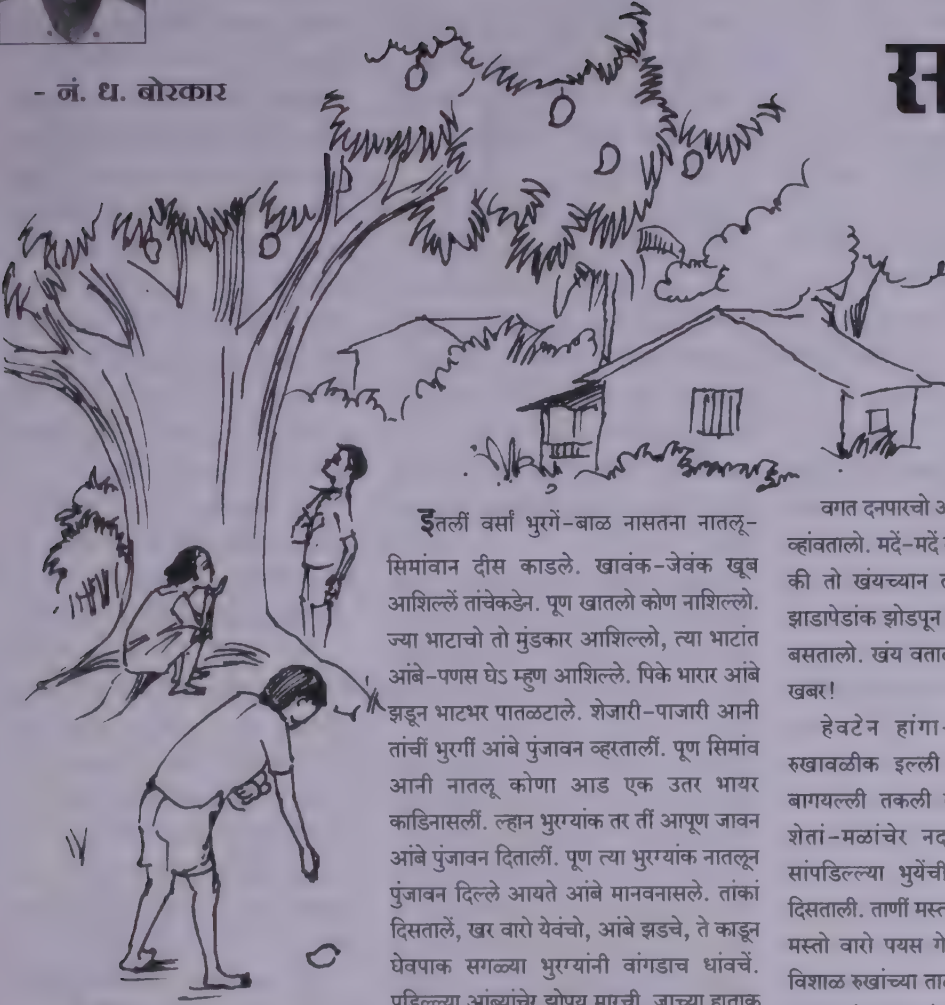 - नं. ध. बोरकार
स
इतलीं वर्सां भुरगें-बाळ नासतना नातलू-
सिमांवान दीस काडले. खावंक-जेवंक खूब
आशिल्लें तांचेकडेन. पूण खातलो कोण नाशिल्लो.
ज्या भाटाचो तो मुंडकार आशिल्लो, त्या भाटांत
आंबे-पणस घेऽ म्हुण आशिल्ले. पिके भारार आंबे
झडून भाटभर पातळटाले. शेजारी-पाजारी आनी
तांचीं भुरगीं आंबे पुंजावन व्हरतालीं. पूण सिमांव
आनी नातलू कोणा आड एक उतर भायर
काडिनासलीं. ल्हान भुरग्यांक तर तीं आपूण जावन
आंबे पुंजावन दितालीं. पूण त्या भुरग्यांक नातलून
पुंजावन दिल्ले आयते आंबे मानवनासले. तांकां
दिसतालें, खर वारो येवंचो, आंबे झडचे, ते काडून
घेवपाक सगळ्या भुरग्यांनी वांगडाच धांवचें.
पडिल्ल्या आंब्यांचेर झोंपय मारची. जाच्या हाताक
वगत दनपारचो
व्हांवतालो. मदें-मदें
की तो खंयच्यान
झाडापेडांक झोडपून
बसतालो. खंय
खबर!
हेवटेन हांगा-
रुखावळीक इल्ली
बागयल्ली तकली
शेतां-मळांचेर
सांपडिल्ल्या भुयेंची
दिसताली. ताणीं
मस्तो वारो पयस
विशाळ रुखांच्या